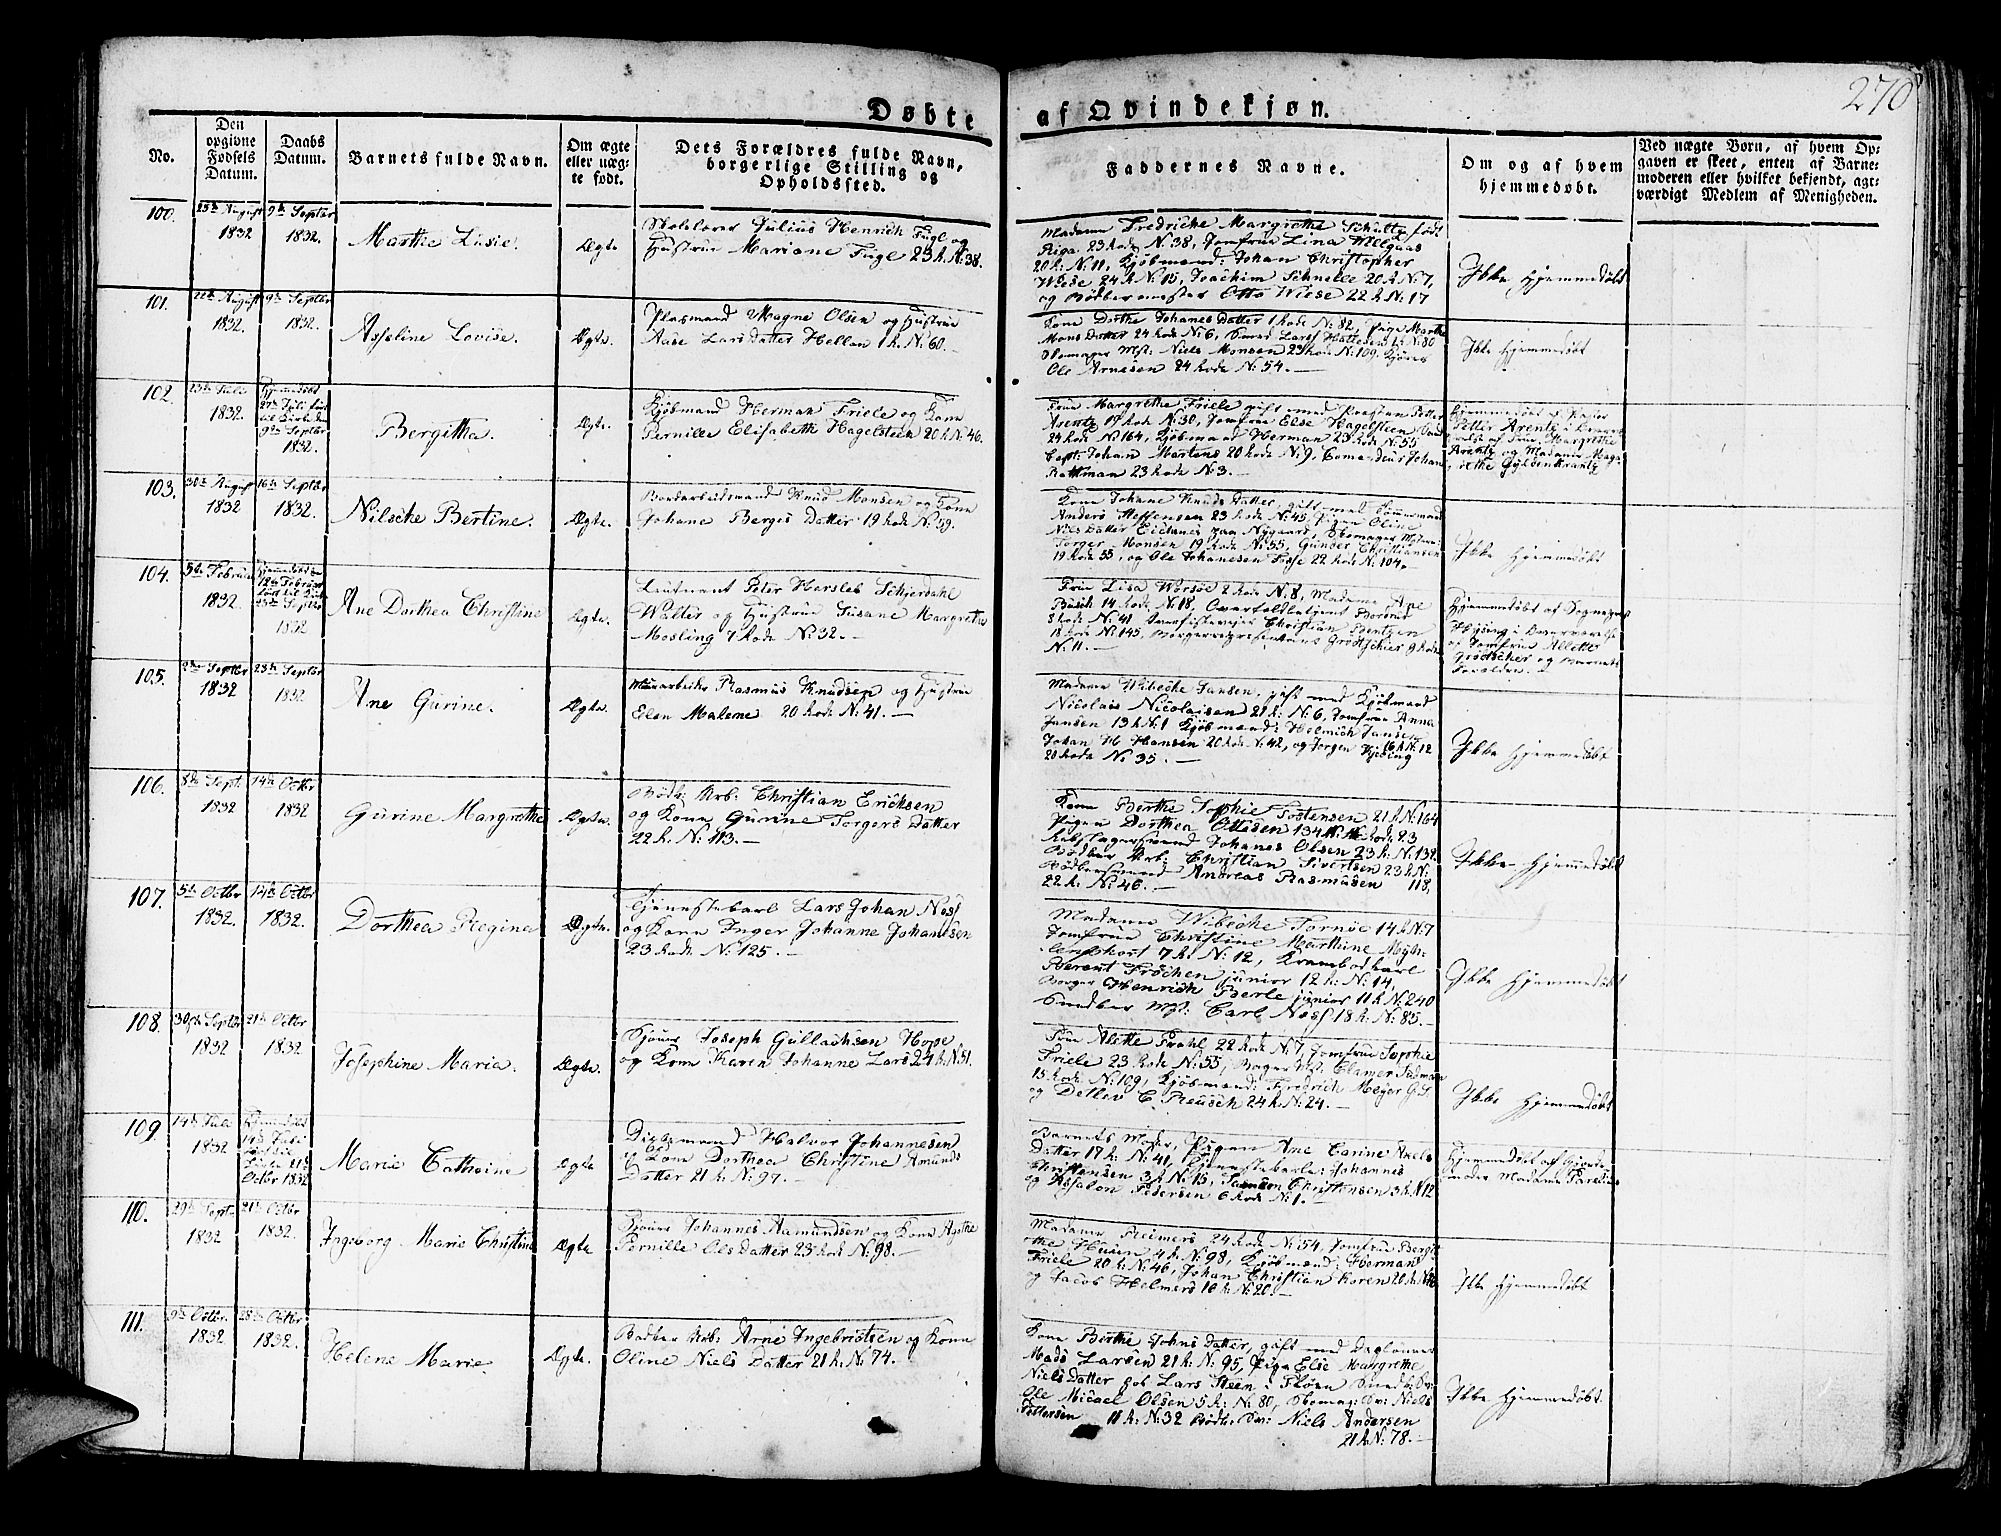 270
Døbte af Qvindekjøn.
No.
Den opgivne Fødsels Datum.
Daabs Datum.
Barnets fulde Navn.
Om ægte eller uægte født.
Dets Forældres fulde Navn, borgerlige Stilling og Opholdssted.
Faddernes Navne.
Om og af hvem hjemmedøbt.
Ved uægte Børn, af hvem Opgaven er skeet, enten af Barnemoderen eller hvilket bekjendt, agtværdigt Medlem af Menigheden.
100. 25de August 1832 9de Septbr 1832. Marthe Lusie. Ægte
Skolelærer Julius Henrich Fugl og
Hustrue Mariane Fugl 23 R. N: 38.
Madame Fredricke Margrethe Schultz født
Riga 23 Rode N: 38, Jomfrue Lina Wellgaas
20 R: N: 11, Kjøbmænd: Johan Christopher
Wiese 24 R N: 15, Joachim Schnelle 20 R N: 7,
og Bødkermester Otto Wiese 22 R N: 17
Ikke Hjemmedøbt
101. 22de August 1832. 9de Septbr 1832. Asseline Lovise. Ægte.
Pladsmand Magne Olsen og Hustrue
Aase Lars Datter Hellen 1 R. N: 60.—
Kone Dorthe Johanes Datter 1 Rode N: 82, Pige Marthe
Mons Datter 24 Rode N: 6, Lars Hattesen 1 R N: 80
Niels Monsen 23 Rode N: 109,
Ole Arnesen 24 Rode N: 54.—
Ikke Hjemmedøbt
102. 23de Juli 1832. Hjemmedøbt 27de Juli 9de Septbr 1832. Bergitha. Ægte.
Kjøbmand Herman Friele og Kone
Pernille Elisabeth Hagelsteen 20 R: N: 46.
Frue Margrethe Friele gift med Petter
Arentz 19 Rode N: 38, Jomfrue Else Hagelsteen
24 Rode N: 164, Kjøbmænd Herman 23 Rode N: 55
Capt: Johan Martens 20 Rode N: 9, Johan
Rattman 23 Rode N: 3.—
Hjemmedøbt af Pastor
Petter Arentz i
af Frue Margrethe
Arentz og Madame
Gyldenkrantz
103. 30te August 1832 16de Septbr 1832. Nilsche Bertine. Ægte.
Knud Monsen og Kone
Johane Bergis Datter 19 Rode N: 59.
Kone Johane Knuds Datter gift med
Anders Steffensen 23 Rode N: 45, Pigen Oline
Niels Datter Nygaard,
Torger Monsen 19 Rode N: 55, Gunder Christiansen
19 Rode 55, og Ole Johanesen Fosse 22 Rode N: 104.
Ikke Hjemmedøbt
104. 5te Februar 1832. Hjemmedøbt 12te Februar 23de Septbr 1832 Ane Dorthea Christine Ægte.
Lieutnant Peter Hersleb Schjerdahl
Walter og Hustrue Susane Margrethe
Mosling 7 Rode N: 32.—
Frue Lisa Worsøe 2 Rode N: 8, Madame Ane
Busch 14 Rode N: 18,
8 Rode N: 41 Christian Bentzen
18 Rode N: 145, 9 Rode
N: 11.—
Hjemmedøbt af Sogneprest
Hysing i Overværelse
af Jomfrue Allette
og Barnets
Forældre.
105. Septbr 1832 23de Septbr 1832 Ane Gurine. Ægte.
Rasmus Knudsen og Hustrue
Elen Malene 20 Rode N: 41.—
Madame Wibecke Jansen, gift med Kjøbmand
Nicolais Nicolaisen 21 R: N: 6, Jomfrue Anna
Jansen 13 R N: 1 Kjøbmænd: Helmich Jansen
Johan H Hansen 20 Rode N: 42, og Jørgen 16 R N: 12
20 Rode N: 35.—
Ikke Hjemmedøbt
106. 8de Sept. 1832 14de Octbr 1832 Gurine Margrethe Ægte.
Bødk: Arb: Christian Ericksen
og Kone Gurine Torgers Datter
22 R. N: 113.
Kone Berthe Sophie Tostensen 21 R N: 164
Pigen Dorthea Ottesen
Johanes Olsen 23 R: N: 132.
Bødker Arb: Christian Sivertsen 23 R N:
Andreas Rasmusen 118,
22 R: N: 46.—
Ikke Hjemmedøbt
107. 5te Octbr 1832. 14de Octbr 1832. Dorthea Regine Ægte.
Tjenestekarl Lars Johan Noss
og Kone Inger Johanne Johansen
23 Rode N: 125.—
Madame Wibecke Tornøe 14 R N: 7
Jomfrue Christine Marthine
7 R: N: 12, Krambodkarl
Berent Frøchen junior 12 R: N: 14,
Borger Henrich Berle junior 11 R N: 240
Snedker Mst: Carl Noss 18 R: N: 85.—
Ikke Hjemmedøbt
108. 30te Septbr 1832 21de Octbr 1832 Josephine Maria. Ægte.
Joseph Gullachsen Hope
og Kone Karen Johanne Lars 24 R. N: 51.
Frue Alette Prahl 22 Rode N: 7, Jomfrue Sophie
Friele 23 Rode N: 55, Clamer
15. Rode N: 109, Kjøbmænd: Fredrich Meyer G.S.
og Detlev C. Reusch 24 R: N: 24.—
Ikke Hjemmedøbt
109. 14de Juli 1832 Hjemmedøbt 14de Juli 21de Octbr 1832 Marie Cathrine Ægte
Halvor Johannesen
og Kone Dorthea Christine Amunds
Datter 21 R: N: 97.—
Barnets Moder, Pigen Ane Carine Niels
Datter 17 R: N: 41, Tjenestekarle: Johannes
Christensen 3 R N: 15, Christensen 3 R: N: 12
og Absalon Pedersen 6 Rode N: 1.—
Hjemmedøbt af
Madame
110. 29de Septr 1832 21de Octbr 1832. Ingeborg Marie Christine Ægte
Johannes Aamundsen og Kone Agethe
Pernille Ols Datter 23 Rode N: 98.—
Madame Reimers 24 Rode N: 54, Jomfrue
4 R: N: 98, Kjøbmænd: Herman
Friele 20 R: N: 46, Johan Christian Koren 20 R N:
og Jacob Helmers 16 R: N: 20.—
Ikke Hjemmedøbt
111. 9de Octbr 1832 28de Octbr 1832. Helene Marie Ægte.
Bødker Arb: Arne Ingebrictsen og Kone
Oline Niels Datter 21 R: N: 74.
Kone Berthe Johns Datter, gift med Dagleier
Mads Larsen 21 R: N: 95, Pige Else Margrethe
Niels Datter hos Lars Steen i Fløen
Ole Micael Olsen 5 R: N: 80, Niels
Tostensen 11 R: N: 32 Bødk: Sv: Niels Andersen
21 R N: 78.—
Ikke Hjemmedøbt.